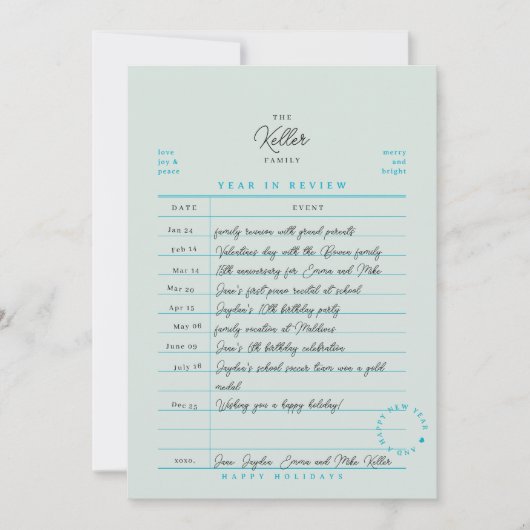 THE
Keller
FAMILY
love
joy &
peace
merry
and
bright
YEAR IN REVIEW
DATE EVENT
Jan 24 family reunion with grand parents
Feb 14 Valentines day with the Bowen family
Mar 14 15th anniversary for Emma and Mike
Mar 20 Jane's first piano recital at school
Apr 15 Jayden's 10th birthday party
May 06 family vacation at Maldives
June 09 Jane's 6th birthday celebration
July 18 Jayden's school soccer team won a gold
medal
Dec 25 Wishing you a happy holiday!
AND A HAPPY NEW YEAR
xoxo, Jane Jayden Emma and Mike Keller
HAPPY HOLIDAYS